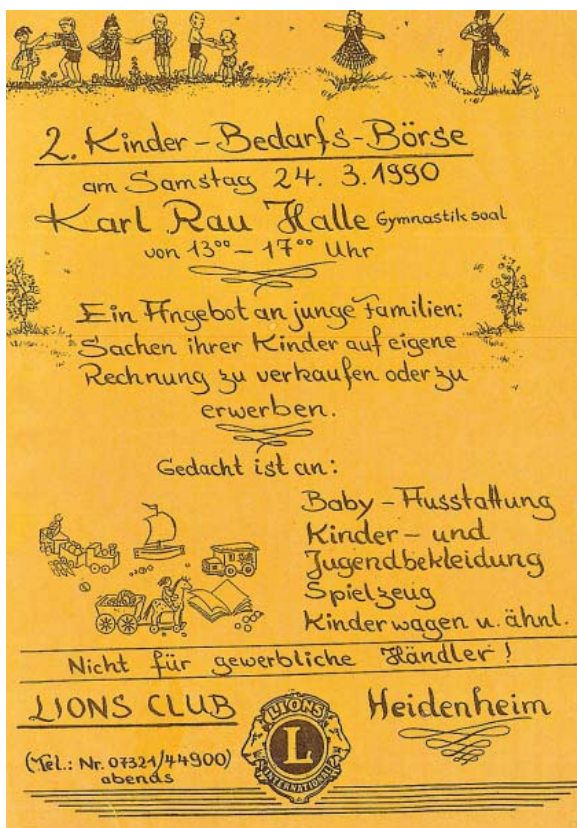 2. Kinder-Bedarfs-Börse
am Samstag 24. 3. 1990
Karl Rau Halle Gymnastiksaal
von 13⁰⁰ – 17⁰⁰ Uhr
Ein Angebot an junge Familien:
Sachen ihrer Kinder auf eigene
Rechnung zu verkaufen oder zu
erwerben.
Gedacht ist an:
Baby-Ausstattung
Kinder- und
Jugendbekleidung
Spielzeug
Kinderwagen u. ähnl.
Nicht für gewerbliche Händler!
LIONS CLUB Heidenheim
LIONS
L
INTERNATIONAL
(Tel.: Nr. 07321/44900)
abends